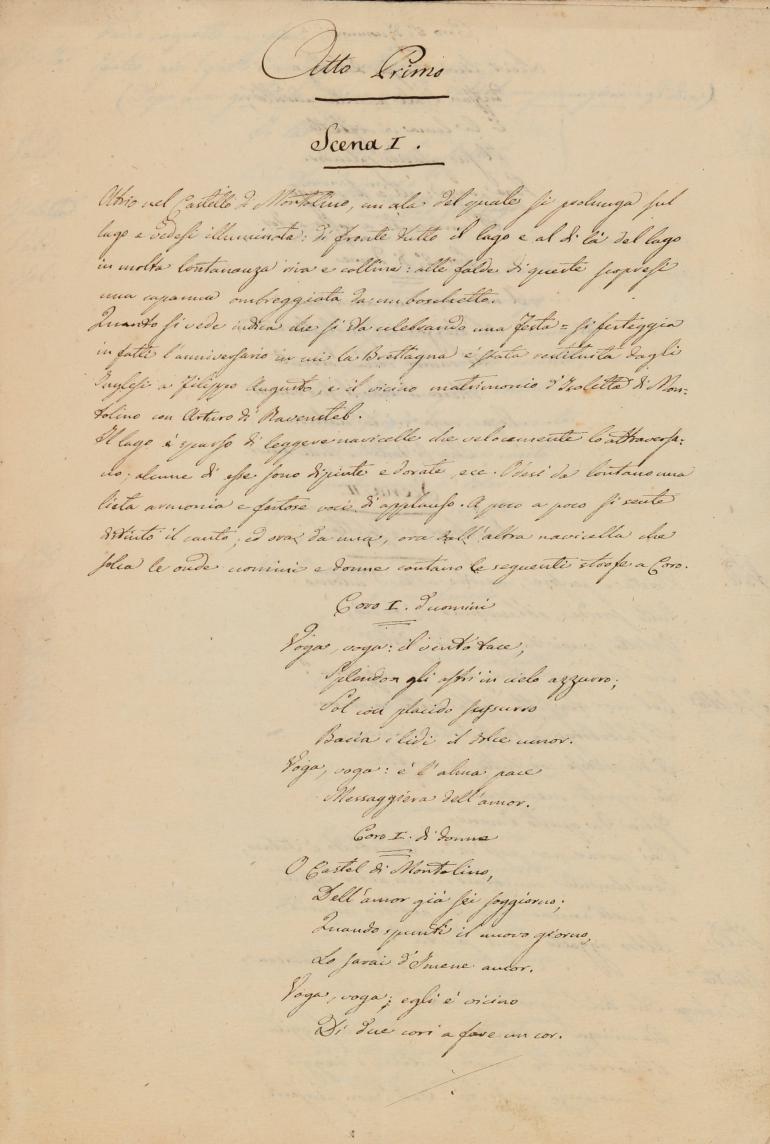 Atto Primo
Scena I.
Atrio nel Castello di Montolino, un ala del quale si prolunga sul
lago e vedesi illuminata: di fronte tutto il lago e al di là del lago
in molta lontananza riva e colline: alle falde di queste scopresi
una capanna ombreggiata da un boschetto.
Quanto si vede indica che si sta celebrando una festa = si festeggia
in fatti l'anniversario in cui la Brettagna è stata restituita dagli
Inglesi a Filippo Augusto, e il vicino matrimonio d'Isoletta di Mon=
tolino con Arturo di Ravenstel.
Il lago è sparso di leggere navicelle che velocemente lo attraversa=
no; alcune di esse sono dipinte e dorate, ecc. Odesi da lontano una
lieta armonia e festose voci di applauso. A poco a poco si sente
distinto il canto; ed ora da una, ora dall'altra navicella che
solca le onde uomini e donne cantano le seguenti strofe a Coro.
Coro I. d'uomini
Voga, voga: il vento tace;
Splendon gli astri in cielo azzurro;
Sol con placido sussurro
Bacia i lidi il dolce umor.
Voga, voga: è l'alma pace
Messaggiera dell'amor.
Coro I. di donne
O Castel di Montolino,
Dell'amor già sei soggiorno;
Quando spunti il nuovo giorno,
Lo sarai d'Imene ancor.
Voga, voga; egli è vicino
Di due cori a fare un cor.